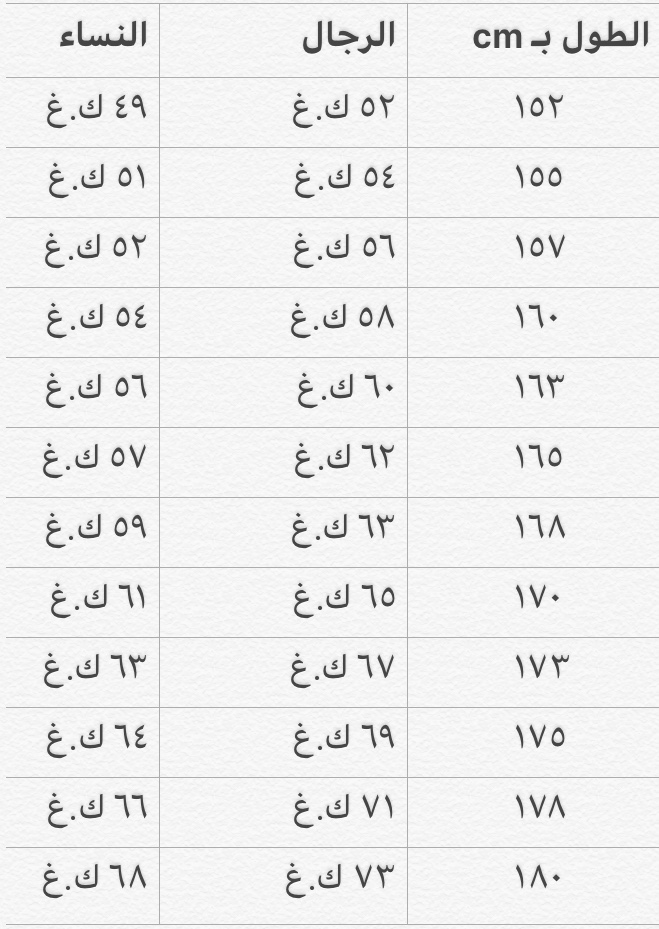 الطول بـ cm الرجال النساء
١٥٢ ٥٢ ك.غ ٤٩ ك.غ
١٥٥ ٥٤ ك.غ ٥١ ك.غ
١٥٧ ٥٦ ك.غ ٥٢ ك.غ
١٦٠ ٥٨ ك.غ ٥٤ ك.غ
١٦٣ ٦٠ ك.غ ٥٦ ك.غ
١٦٥ ٦٢ ك.غ ٥٧ ك.غ
١٦٨ ٦٣ ك.غ ٥٩ ك.غ
١٧٠ ٦٥ ك.غ ٦١ ك.غ
١٧٣ ٦٧ ك.غ ٦٣ ك.غ
١٧٥ ٦٩ ك.غ ٦٤ ك.غ
١٧٨ ٧١ ك.غ ٦٦ ك.غ
١٨٠ ٧٣ ك.غ ٦٨ ك.غ